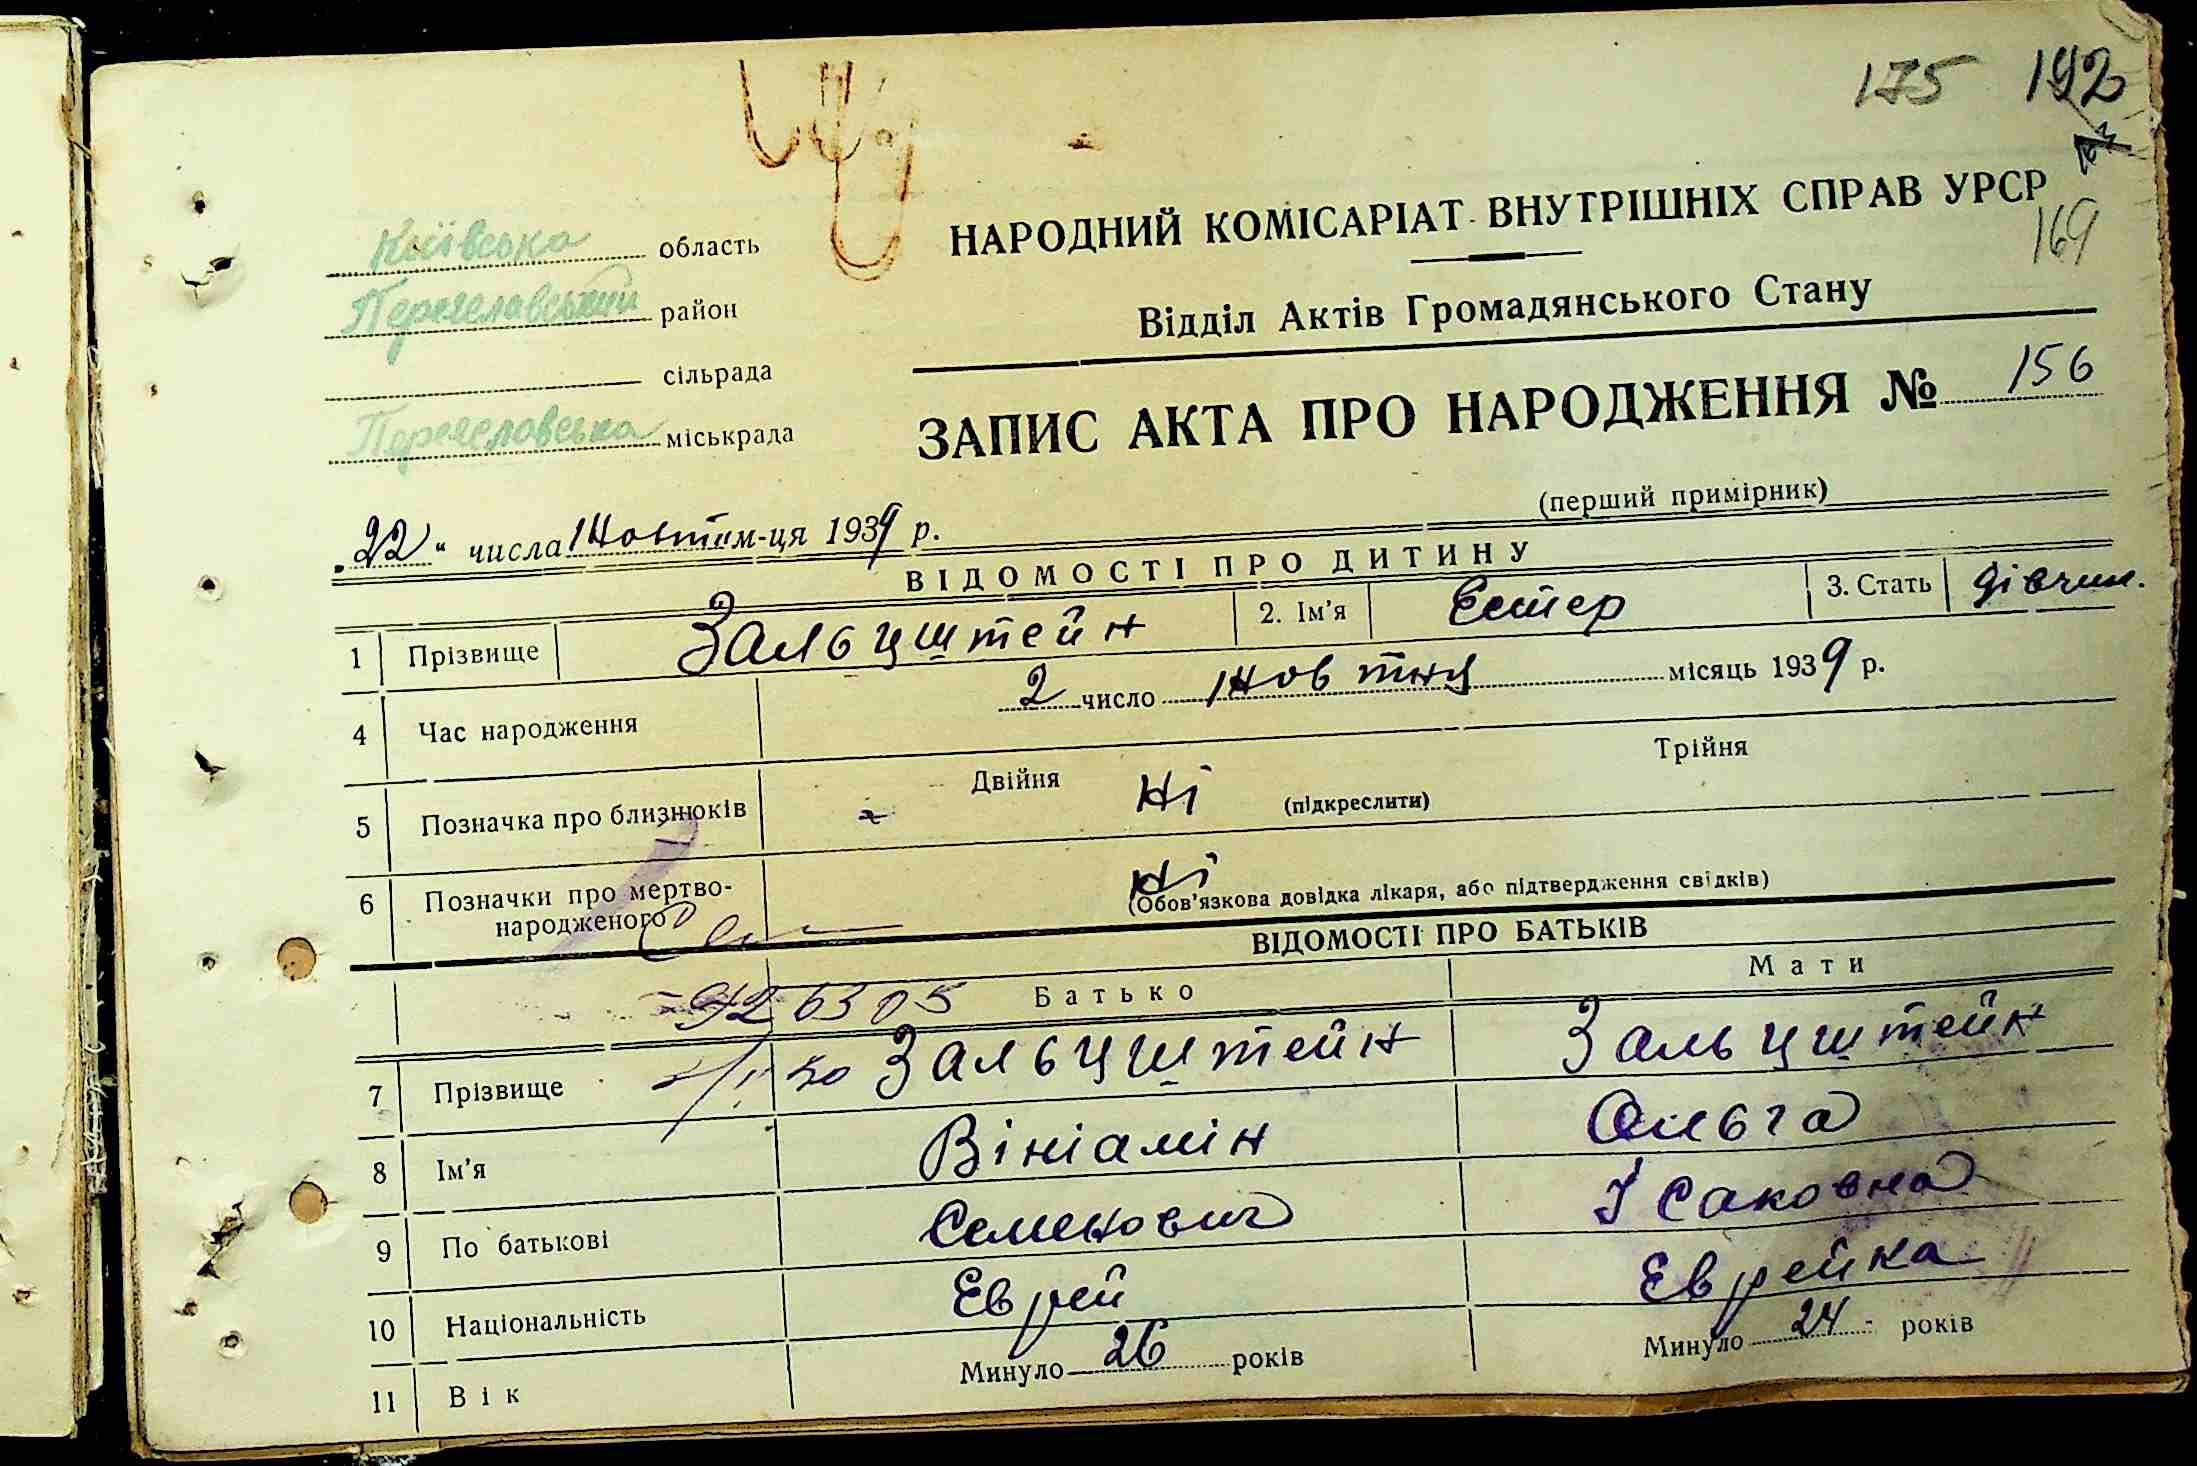 175 192
169
Київська область
Переяславський район
сільрада
Переяславська міськрада
НАРОДНИЙ КОМІСАРІАТ ВНУТРІШНІХ СПРАВ УРСР
Відділ Актів Громадянського Стану
ЗАПИС АКТА ПРО НАРОДЖЕННЯ № 156
(перший примірник)
„22“ числа Жовтня м-ця 1939 р.
ВІДОМОСТІ ПРО ДИТИНУ
1 Прізвище Зальцштейн 2. Ім'я Естер 3. Стать дівчин.
4 Час народження 2 число Жовтня місяць 1939 р.
5 Позначка про близнюків Двійня Ні (підкреслити) Трійня
6 Позначки про мертво-
народженого Ні
(Обов'язкова довідка лікаря, або підтвердження свідків)
ВІДОМОСТІ ПРО БАТЬКІВ
Батько Мати
7 Прізвище Зальцштейн Зальцштейн
8 Ім'я Вініамін Ольга
9 По батькові Семенович Ісаковна
10 Національність Еврей Еврейка
11 Вік Минуло 26 років Минуло 24 років